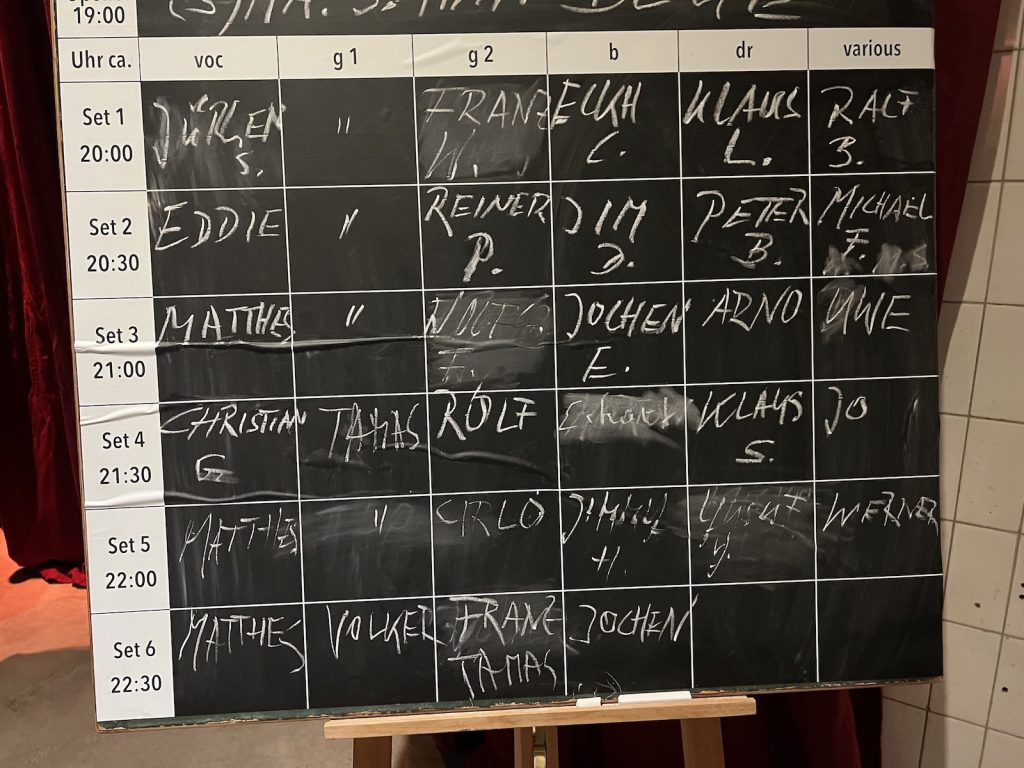 19:00
Uhr ca. voc g 1 g 2 b dr various
Set 1 JÜRGEN " FRANZ ECKH KLAUS RALF
20:00 S. W. C. L. B.
Set 2 EDDIE " REINER JIM PETER MICHAEL
20:30 P. D. B. F.
Set 3 MATTHES " JOCHEN ARNO UWE
21:00 F. E.
Set 4 CHRISTIAN TAMAS ROLF KLAUS JO
21:30 G. S.
Set 5 MATTHES " CIRLO JIMMY WERNER
22:00 H. Y.
Set 6 MATTHES VOLKER FRANZ JOCHEN
22:30 TAMAS